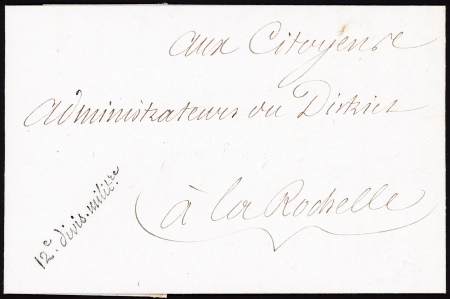 aux Citoyens
administrateurs du District
à la Rochelle
12e. divis. militre.